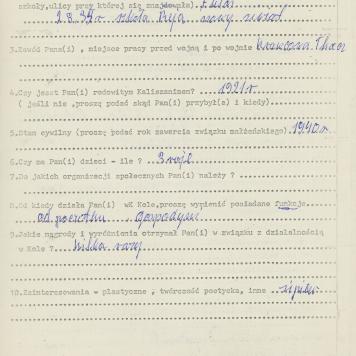 szkoły,ulicy przy której się znajdowała)
3.Zawód Pana(i) , miejsce pracy przed wojną i po wojnie krawcowa
4.Czy jest Pan(i) rodowitym Kaliszaninem? 1921r
( jeśli nie ,proszę podać skąd Pan(i) przybył(a) i kiedy)
5.Stan cywilny (proszę podać rok zawarcia związku małżeńskiego) 1940r
6.Czy ma Pan(i) dzieci - ile ? 3
7.Do jakich organizacji społecznych Pan(i) należy ?
8.Od kiedy działa Pan(i) w Kole,proszę wymienić posiadane funkcje
od początku gospodyni
9.Jakie nagrody i wyróżnienia otrzymał Pan(i) w związku z działalnością
w Kole ? kilka razy
10.Zainteresowania - plastyczne , twórczość poetycka, inne śpiew